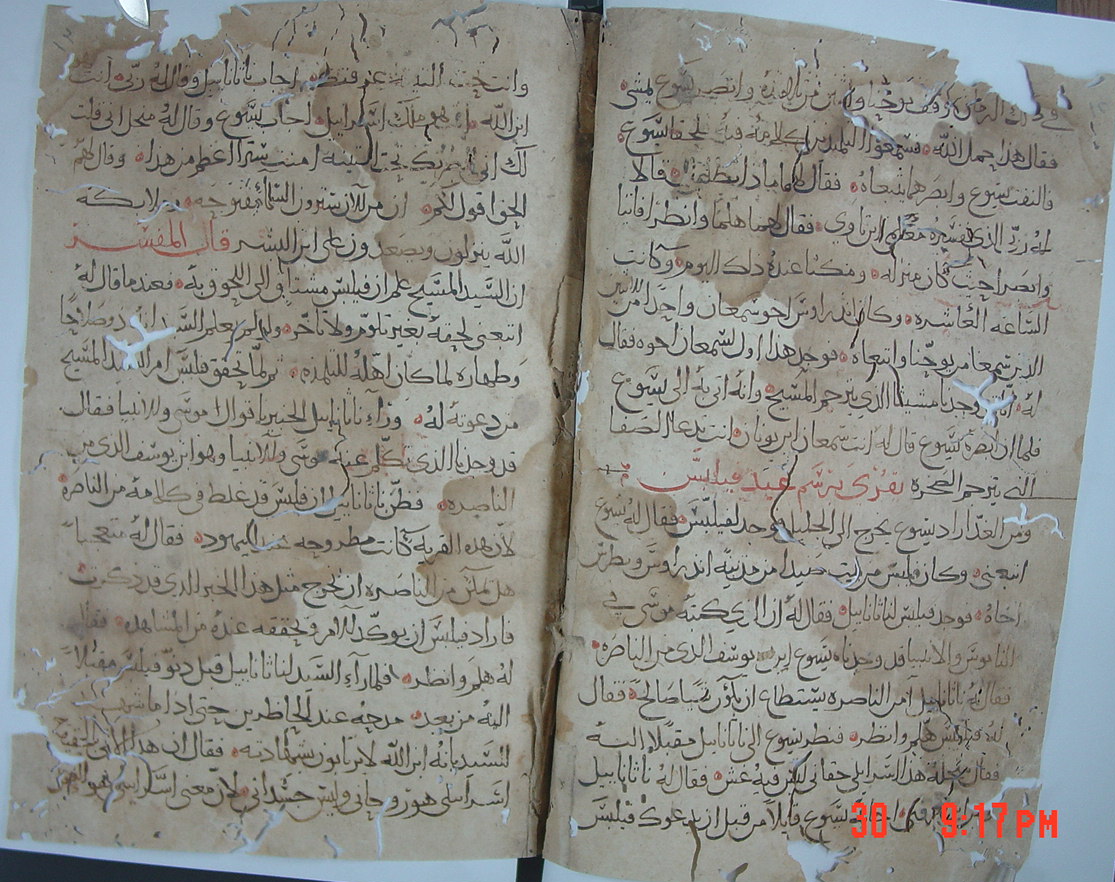 في ذلك الزمان كان يوحنا واقف واثنين من تلاميذه وابصر يسوع يمشي
فقال هذا حمل الله فسمعوا التلميذين كلامه فيه لحقا يسوع
فالتفت يسوع وابصرهما تبعاه فقال لهما ماذا تطلبان قالا
له ربّ الذي تفسيره معلم اين تاوي فقال لهما هلما وانظرا فاتيا
وابصرا حيث كان منزله ومكثا عنده ذلك اليوم وكانت
الساعه العاشره وكان اندراوس اخو سمعان واحدا من الاثنين
الذين سمعا من يوحنا واتبعاه فوجد هذا اول سمعان اخوه فقال
له وجدنا مشيحا الذي يترجم المسيح وانه اتى به الى يسوع
فلما ابصره يسوع قال له انت سمعان ابن يونان انت تدعا الصفا
التي تترجم الصخره تقرى برسم عيد فيلبس
ومن الغد اراد يسوع يخرج الى الجليل فوجد لفيلبس فقال له يسوع
اتبعني وكان فيلبس من بيت صيدا من مدينة اندراوس وبطرس
اخاه فوجد فيلبس لناثانايل فقال له ان الذي كتبه موسى في
الناموس والانبيا قد وجدناه يسوع ابن يوسف الذي من الناصره
فقال له ناثانايل امن الناصره يستطاع ان يكون شيا صالحا فقال
له فيلبس هلم وانظر فنظر يسوع الى ناثانايل مقبلا اليه
فقال من اجله هذا اسرايلي حقاني ليس فيه غش فقال له ناثانايل
من اين تعرفني اجابه يسوع قايلا من قبل ان يدعوك فيلبس
وانت تحت التينة عرفتك اجاب ناثانايل وقال له ربي انت
ابن الله انت هو ملك اسرايل اجاب يسوع وقال له من اجل اني قلت
لك اني ابصرتك تحت التينه امنت سترا اعظم من هذا وقال لهم
الحق اقول لكم ان من الان سترون السما مفتوحه وملايكة
الله ينزلون ويصعدون على ابن البشر قال المفسر
ان السيد المسيح علم ان فيلبس مشتاق الى اللحوق به فعندما قال له
اتبعني لحقه بغير تلوم ولا تاخر ولو لم يعلم السيد ان فيه صلاحا
وطهاره لما كان اهله للتلمذه ثم لما تحقق فيلبس امر السيد المسيح
من دعوته له وراى ناثانايل الخبير باقوال موسى والانبيا فقال
قد وجدنا الذي تكلم عنه موسى والانبيا وهو ابن يوسف الذي من
الناصره فظن ناثانايل ان فيلبس قد غلط في كلامه من الناصره
لان هذه القريه كانت مطروحه عند اليهود فقال له متعجبا
هل يمكن من الناصره ان يخرج مثل هذا الخير الذي قد ذكرت
فاراد فيلبس ان يوكد الامر وتحققه عنده من المشاهده فقال
له هلم وانظر فلما راء السيد لناثانايل قبل دنوه فيلبس مقبلا
اليه من بعد مدحه عند الحاضرين حتى اذا ما شهد
للسيد بانه ابن الله لا يرتابون بشهادته فقال ان هذا
اسرايلي هو روحاني وليس جسداني لان معنى اسرايل هو
30 9:17PM